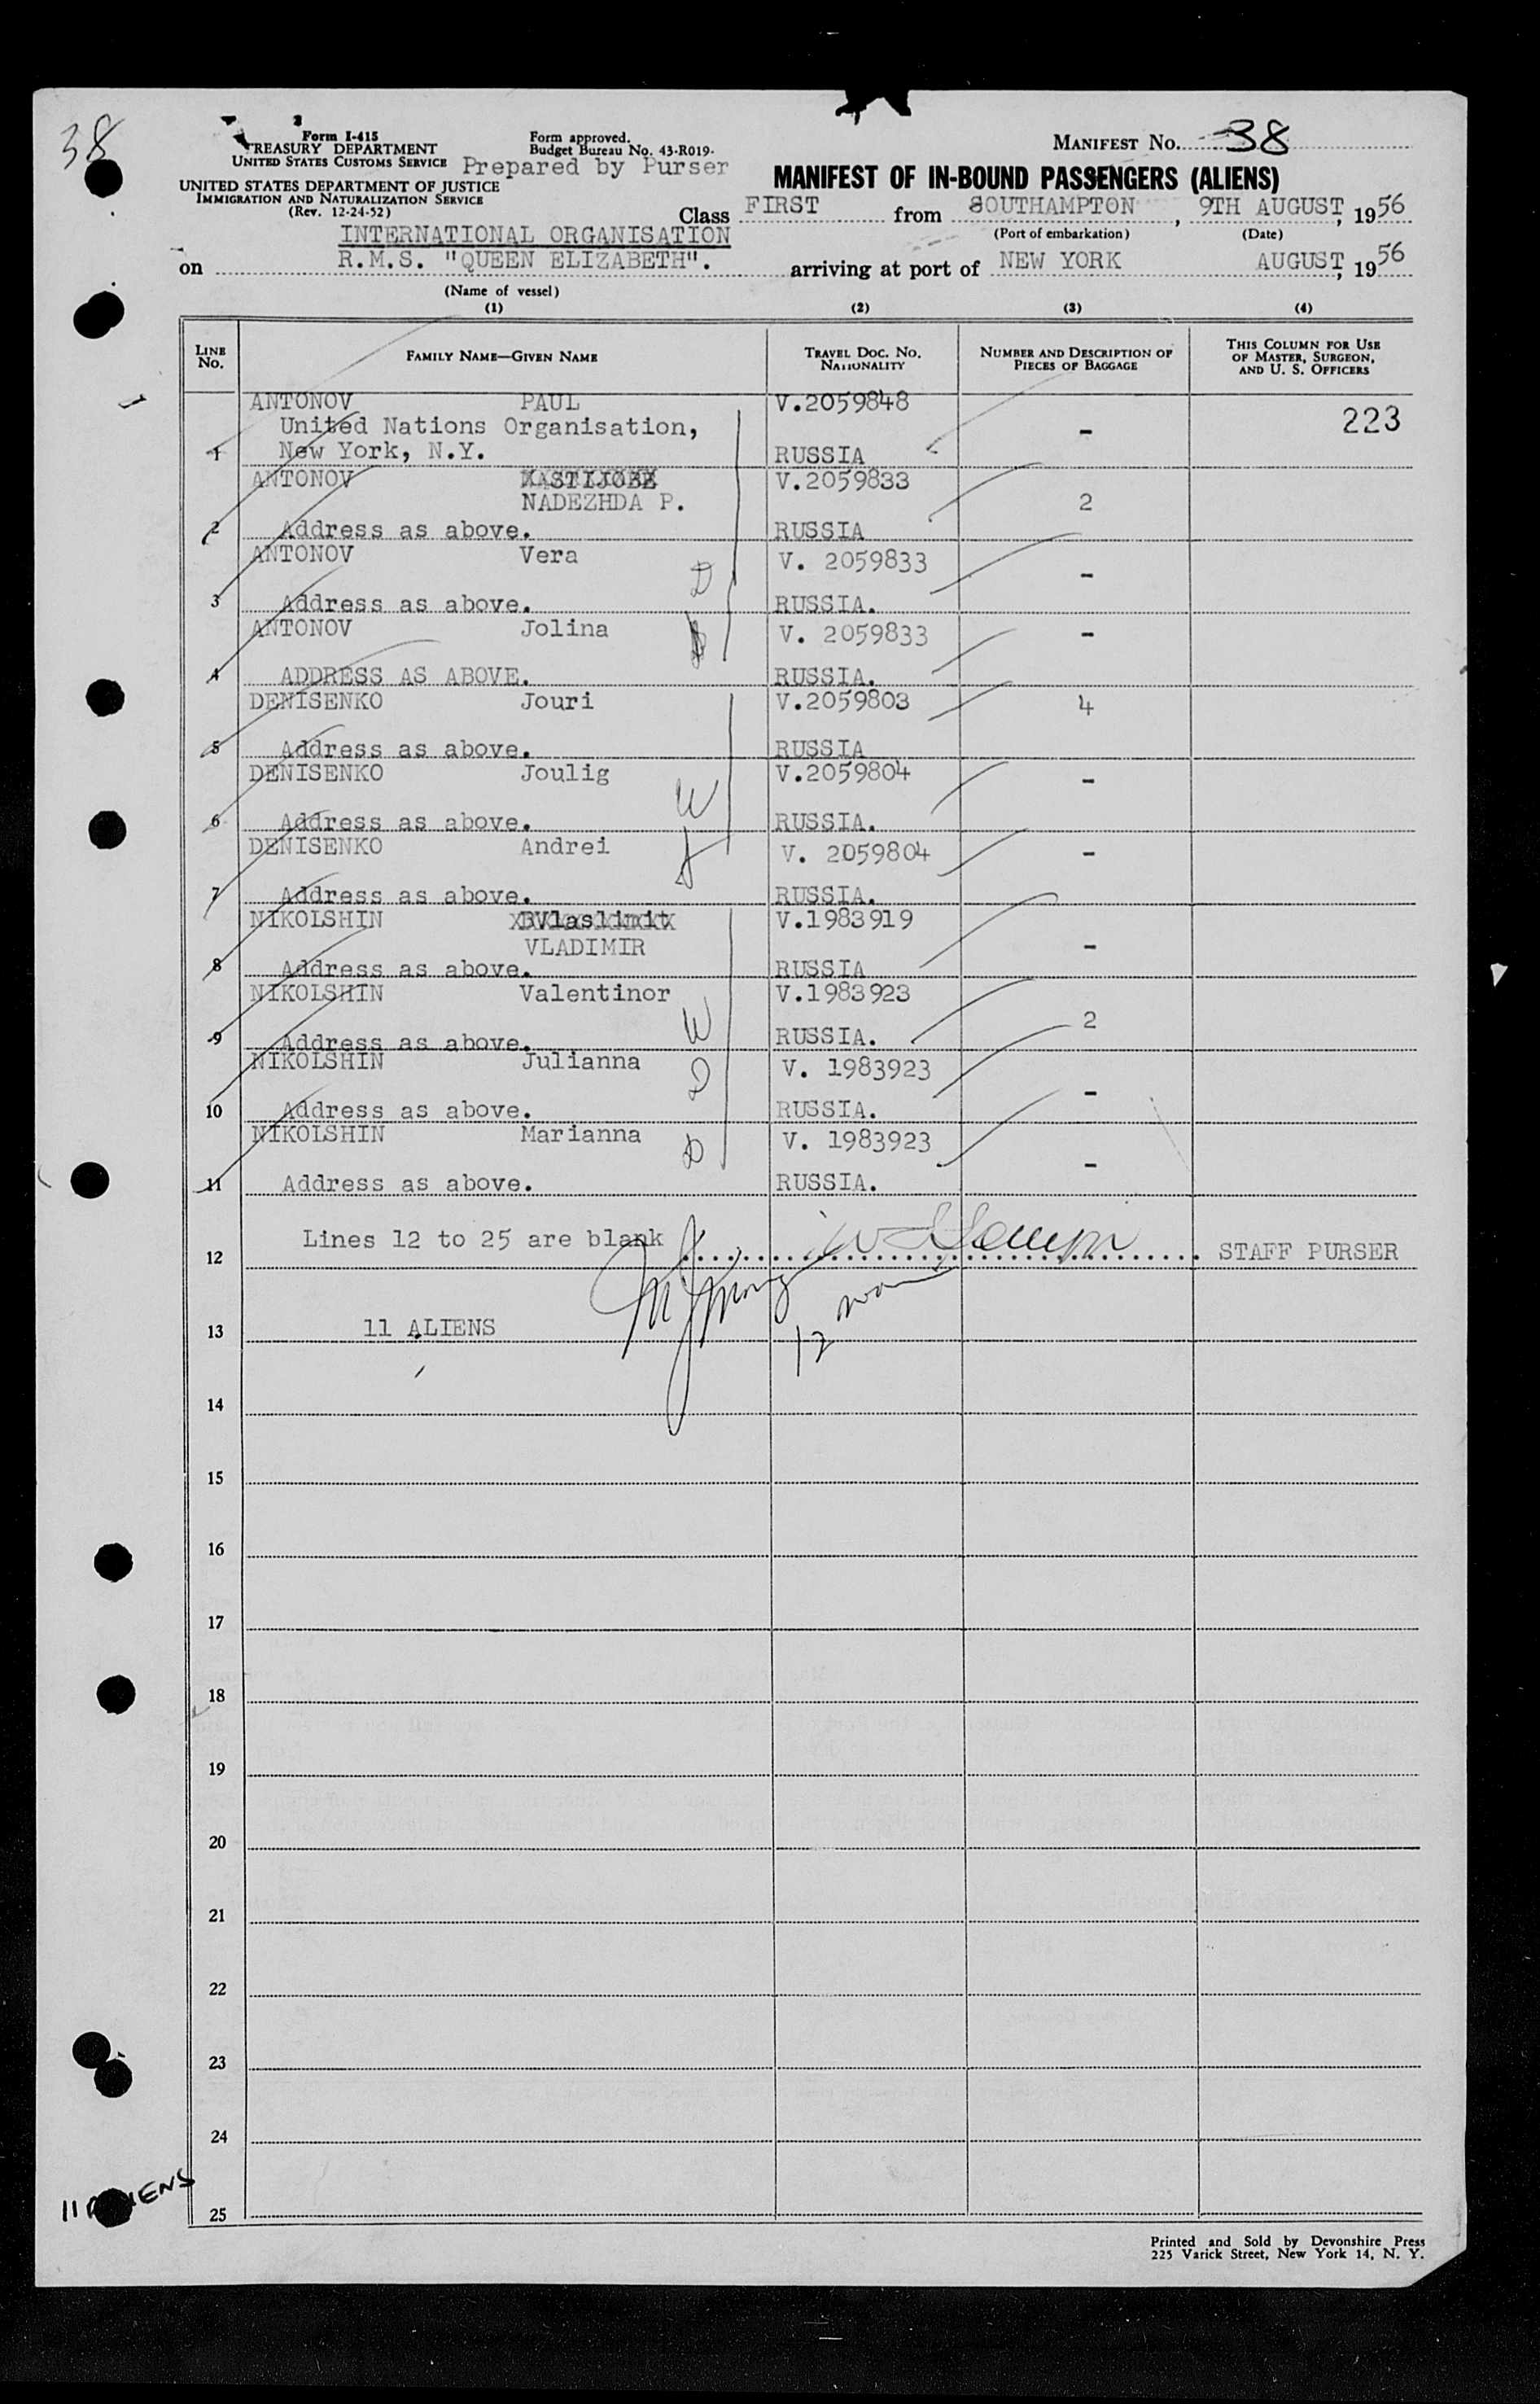 38
Form I-415
TREASURY DEPARTMENT
UNITED STATES CUSTOMS SERVICE
Form approved.
Budget Bureau No. 43-R019.
Prepared by Purser
MANIFEST No. 38
UNITED STATES DEPARTMENT OF JUSTICE
IMMIGRATION AND NATURALIZATION SERVICE
(Rev. 12-24-52)
MANIFEST OF IN-BOUND PASSENGERS (ALIENS)
Class FIRST from SOUTHAMPTON, 9TH AUGUST, 1956
(Port of embarkation) (Date)
INTERNATIONAL ORGANISATION
on R.M.S. "QUEEN ELIZABETH". arriving at port of NEW YORK AUGUST, 1956
(Name of vessel)
(1) (2) (3) (4)
LINE No. FAMILY NAME—GIVEN NAME TRAVEL DOC. No. NATIONALITY NUMBER AND DESCRIPTION OF PIECES OF BAGGAGE THIS COLUMN FOR USE OF MASTER, SURGEON, AND U. S. OFFICERS
ANTONOV PAUL V.2059848
United Nations Organisation, - 223
1 New York, N.Y. RUSSIA
ANTONOV V.2059833
NADEZHDA P. 2
2 Address as above. RUSSIA
ANTONOV Vera V. 2059833
D -
3 Address as above. RUSSIA.
ANTONOV Jolina V. 2059833 -
4 ADDRESS AS ABOVE. RUSSIA.
DENISENKO Jouri V.2059803 4
5 Address as above. RUSSIA
DENISENKO Joulig V.2059804 -
W
6 Address as above. RUSSIA.
DENISENKO Andrei V. 2059804 -
7 Address as above. RUSSIA.
NIKOLSHIN BVlaslinit V.1983919
VLADIMIR -
8 Address as above. RUSSIA
NIKOLSHIN Valentinor V.1983923
W 2
9 Address as above. RUSSIA.
NIKOLSHIN Julianna V. 1983923
D -
10 Address as above. RUSSIA.
NIKOLSHIN Marianna V. 1983923
D -
11 Address as above. RUSSIA.
12 Lines 12 to 25 are blank STAFF PURSER
13 11 ALIENS 12
14
15
16
17
18
19
20
21
22
23
24
11 ALIENS
25
Printed and Sold by Devonshire Press
225 Varick Street, New York 14, N. Y.